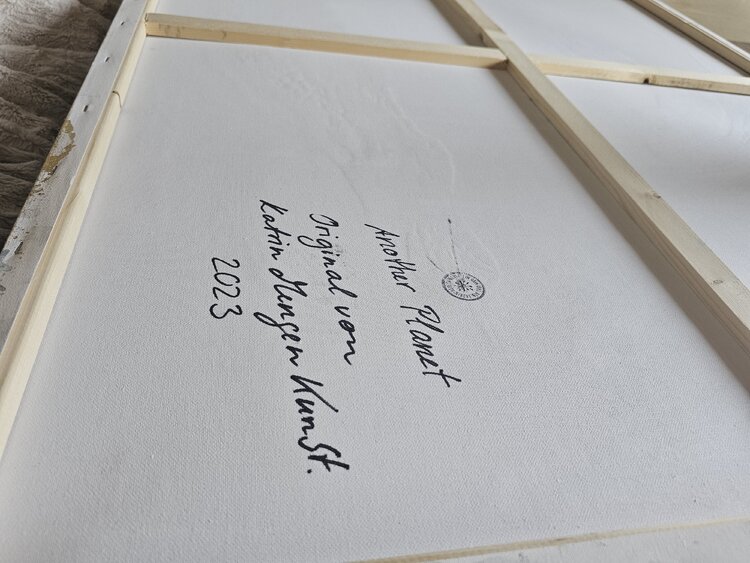 Another Planet
Original von
Katrin Mengen Kunst.
2023